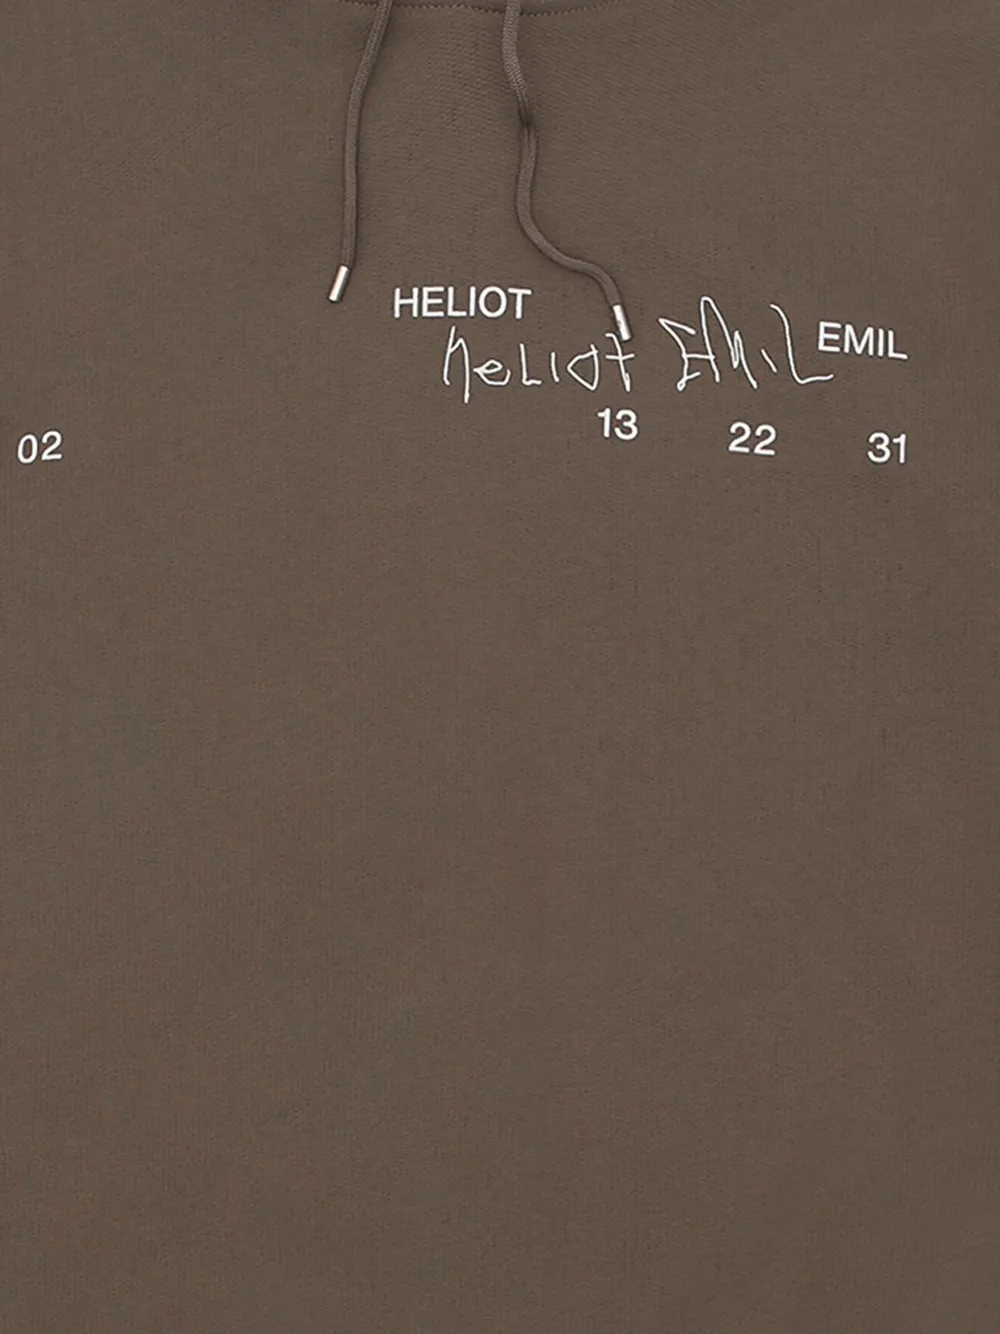 HELIOT
EMIL
heLIOT EMIL
02 13 22 31